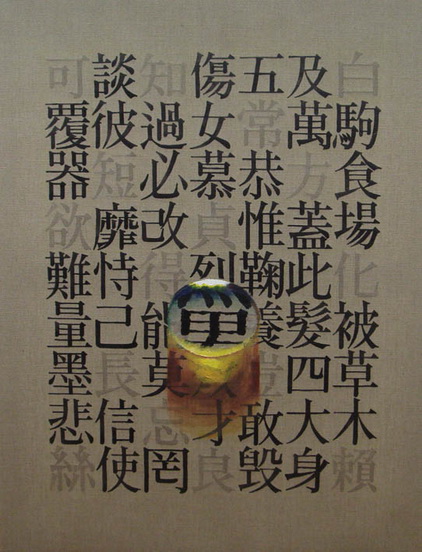 白駒食場化被草木賴
及萬方蓋此髮四大身
五常恭惟鞠養豈敢毀
傷女慕貞烈男才良
知過必改得能莫忘罔
談彼短靡恃己長信使
可覆器欲難量墨悲絲